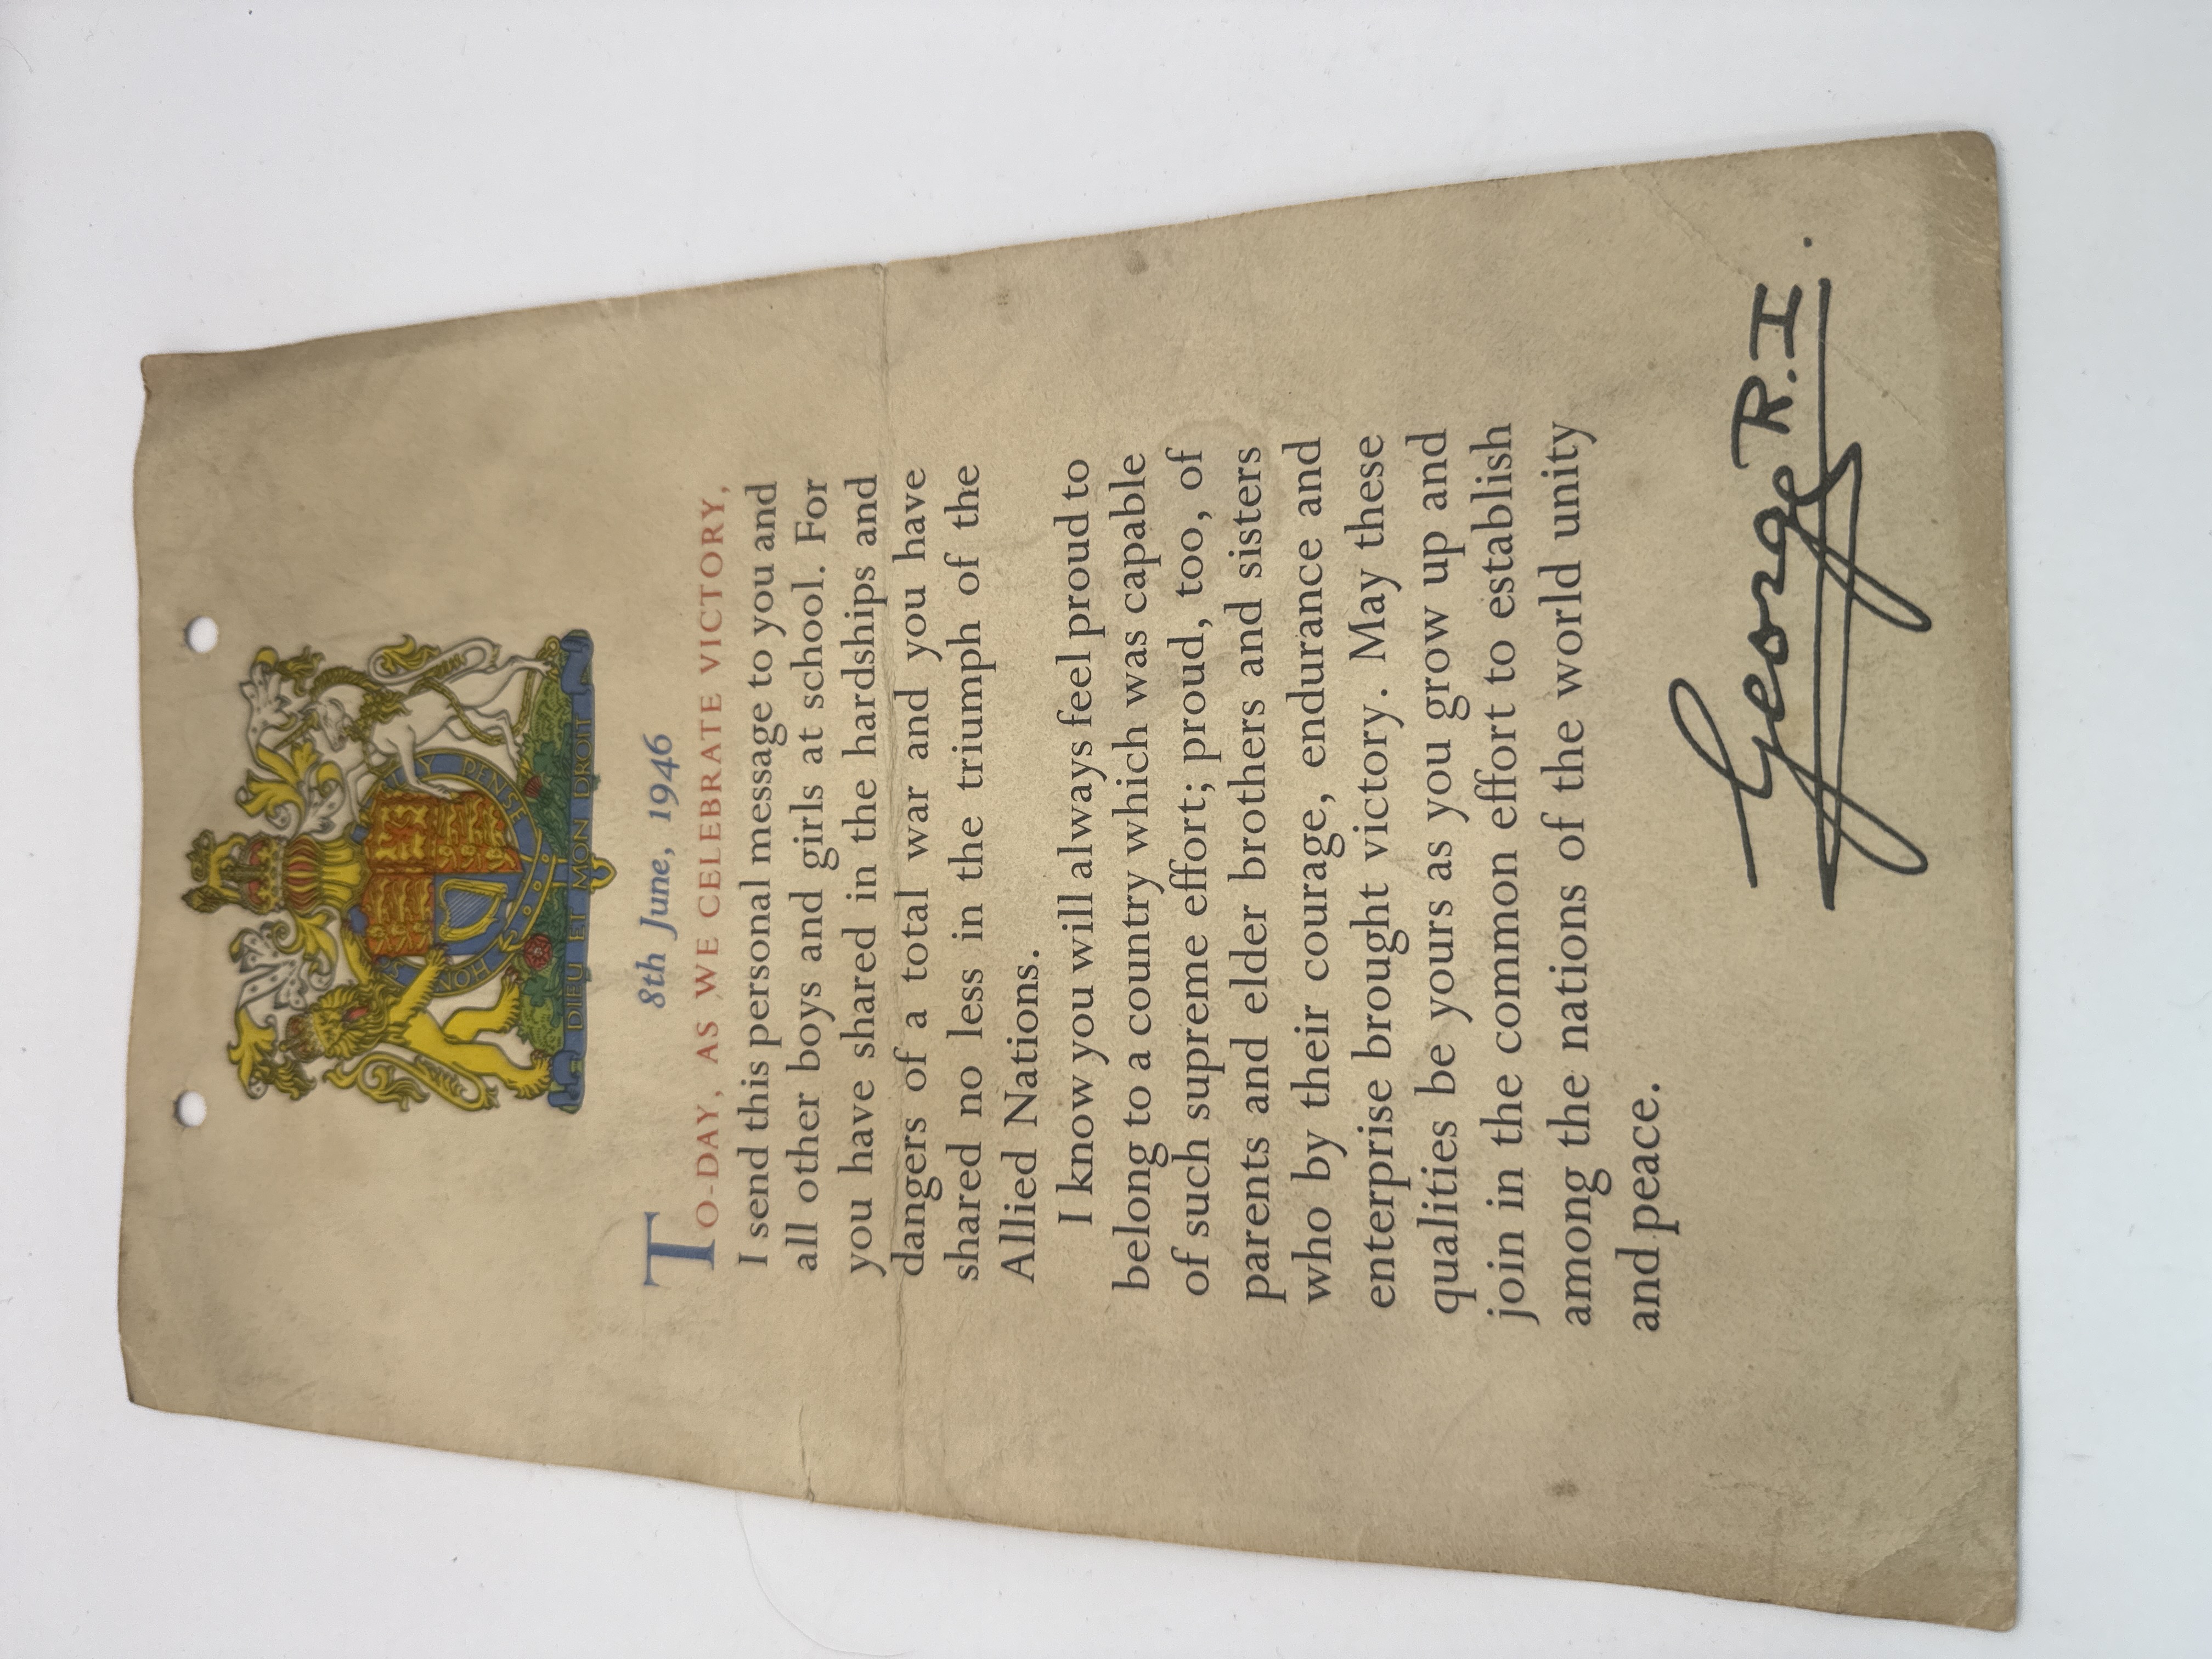 HON Y PENSE
DIEU ET MON DROIT
8th June, 1946
TO-DAY, AS WE CELEBRATE VICTORY,
I send this personal message to you and
all other boys and girls at school. For
you have shared in the hardships and
dangers of a total war and you have
shared no less in the triumph of the
Allied Nations.
I know you will always feel proud to
belong to a country which was capable
of such supreme effort; proud, too, of
parents and elder brothers and sisters
who by their courage, endurance and
enterprise brought victory. May these
qualities be yours as you grow up and
join in the common effort to establish
among the nations of the world unity
and peace.
George R.I.